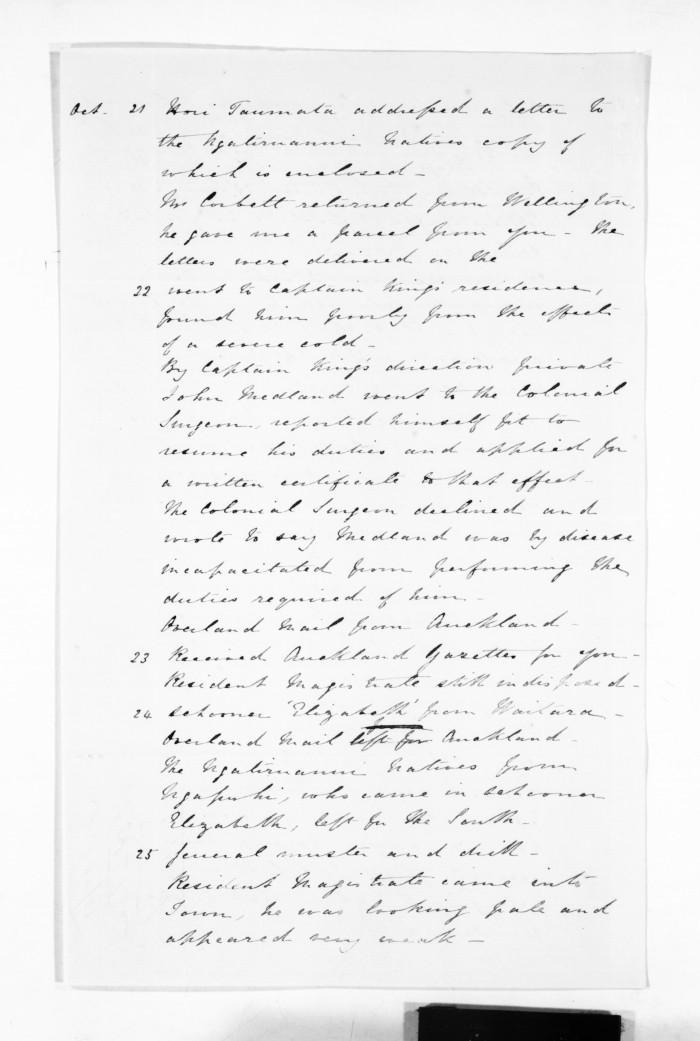 Oct. 21 Hori Taumata addressed a letter to
the Ngatiruanui Natives copy of
which is enclosed -
Mr Corbett returned from Wellington,
he gave me a parcel from you - The
letters were delivered on the
22 went to Captain King's residence,
found him poorly from the effects
of a severe cold -
By Captain King's direction private
John Medland went to the Colonial
Surgeon, reported himself fit to
resume his duties and applied for
a written certificate to that effect -
The Colonial Surgeon declined and
wrote to say Medland was by disease
incapacitated from performing the
duties required of him -
Overland Mail from Auckland -
23 Received Auckland Gazettes for you -
Resident Magistrate still indisposed -
24 schooner 'Elizabeth' from Waitara -
Overland Mail left for Auckland -
The Ngatiruanui Natives from
Ngapuhi, who came in schooner
Elizabeth, left for the South -
25 general muster and drill -
Resident Magistrate came into
Town, he was looking pale and
appeared very weak -